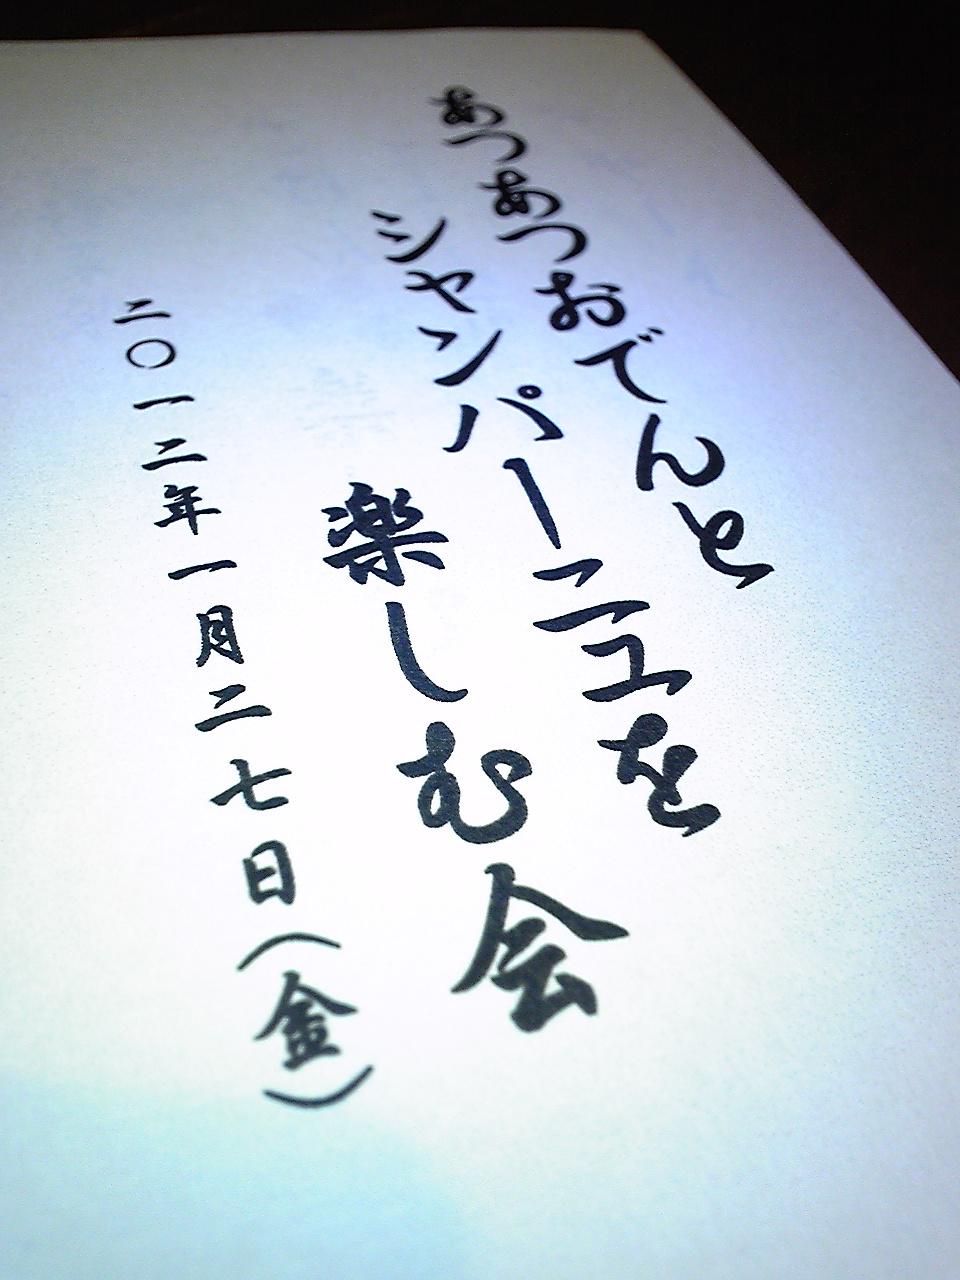 あつあつおでんと
シャンパーニュを
楽しむ会
二〇一二年一月二七日(金)